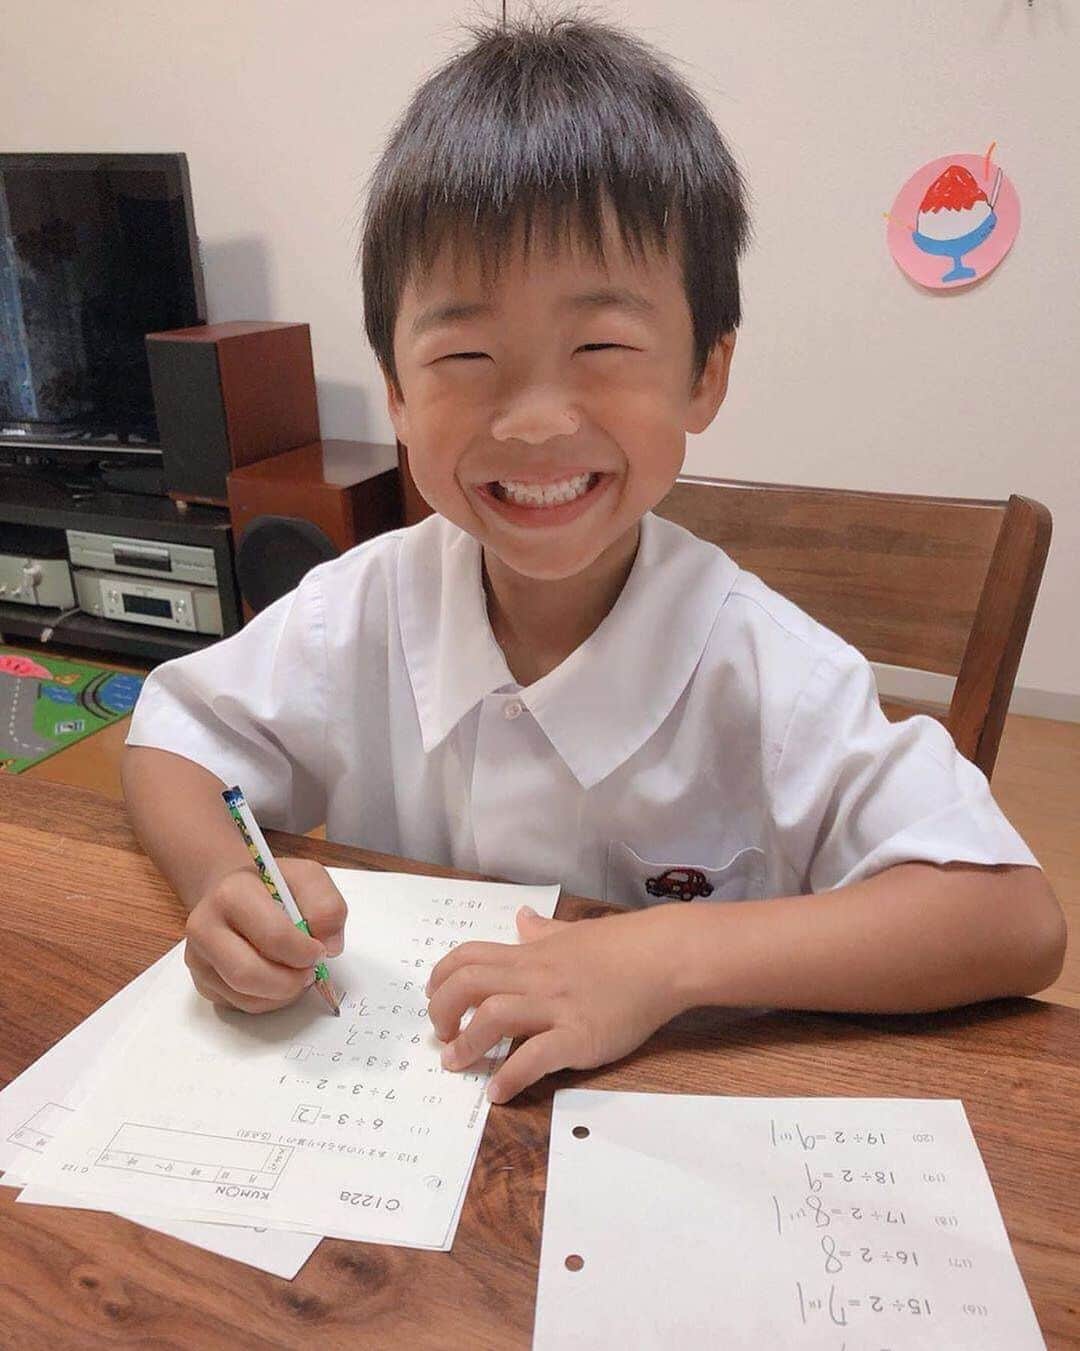 C122a
KUMON
C 122
#13 あまりのあるわり算の1
(1) 6 ÷ 3 = 2
(2) 7 ÷ 3 = 2 … 1
8 ÷ 3 = 2 … 1
9 ÷ 3 = 3
0 ÷ 3 = 3 … 1
÷ 3 =
÷ 3 =
3 ÷ 3 =
14 ÷ 3 =
15 ÷ 3 =
(16) 15 ÷ 2 = 7 … 1
(17) 16 ÷ 2 = 8
(18) 17 ÷ 2 = 8 … 1
(19) 18 ÷ 2 = 9
(20) 19 ÷ 2 = 9 … 1